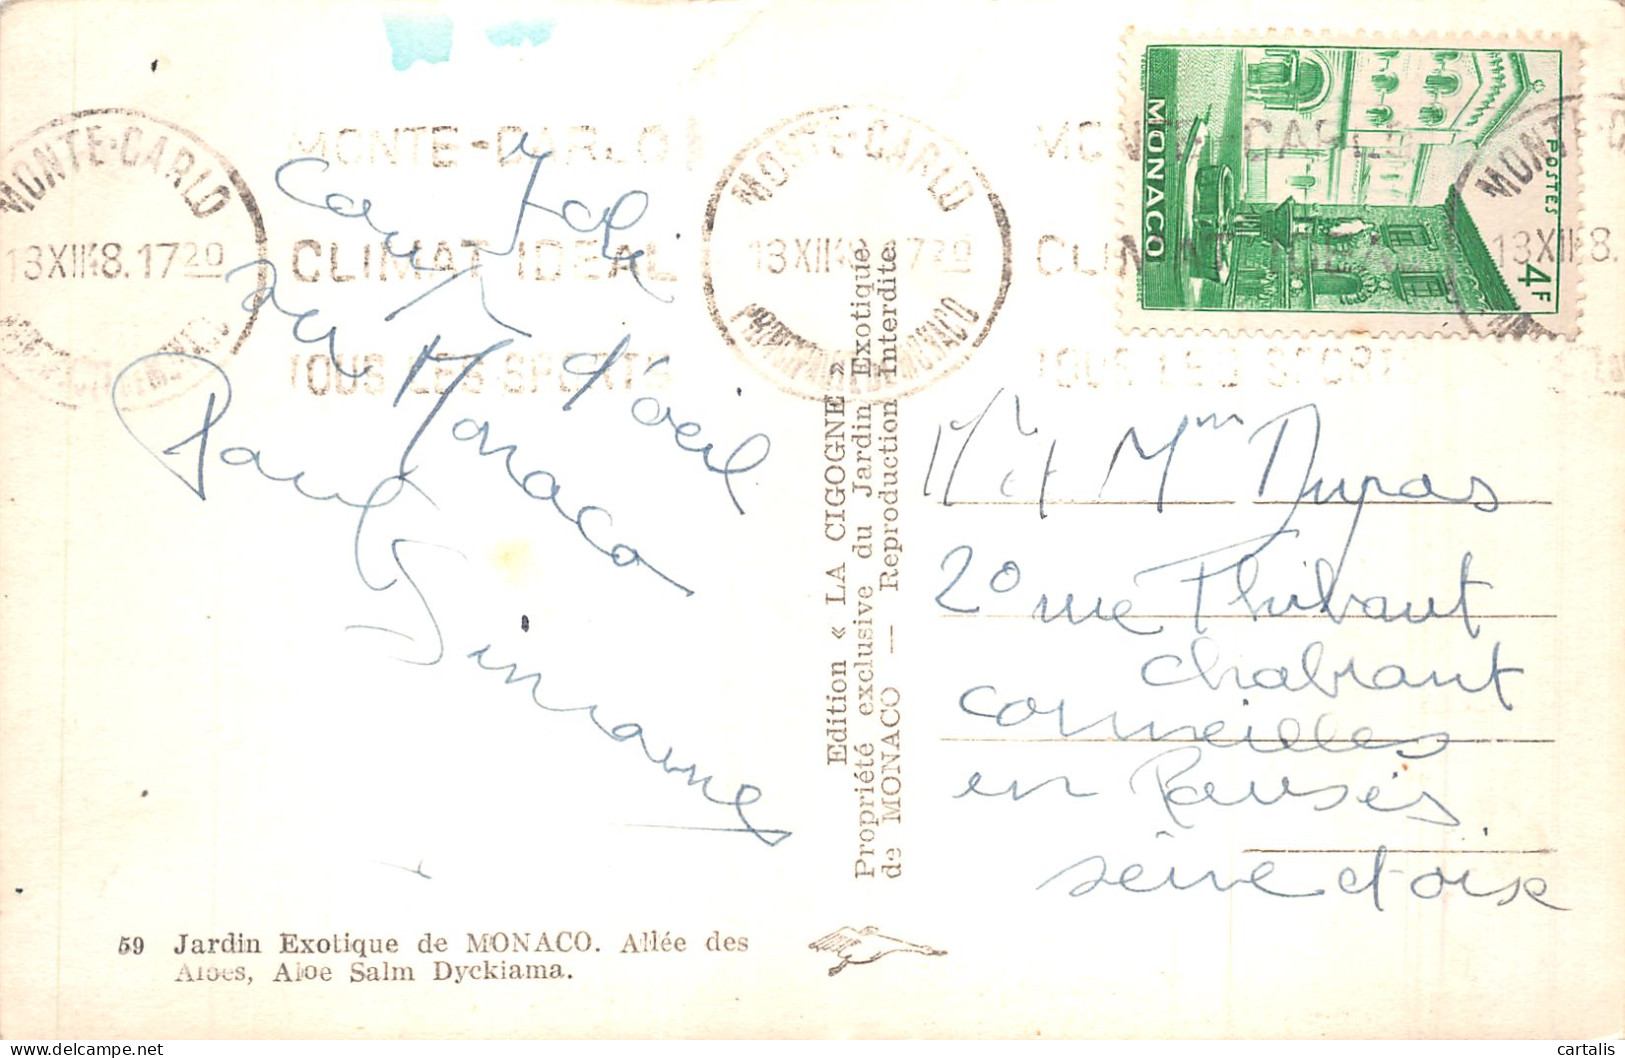 MONTE-CARLO
13XII48.1720
PRINCIPAUTÉ DE MONACO
MONTE-CARLO
CLIMAT IDEAL
TOUS LES SPORTS
MONTE-CARLO
13XII48.1720
PRINCIPAUTÉ DE MONACO
MONTE-CARLO
CLIMAT IDEAL
TOUS LES SPORT
MONTE
13XII48.
MONACO
POSTES
4F
Joli
d'oeil
Monaco
Paul
Simone
Edition « LA CIGOGNE »
Propriété exclusive du Jardin Exotique
de MONACO — Reproduction Interdite.
Mr & Mme Dupas
20 rue Thibaut
Chabrant
Cormeilles
en Parisis
Seine et oise
59 Jardin Exotique de MONACO. Allée des
Aloes, Aloe Salm Dyckiama.
cartalis